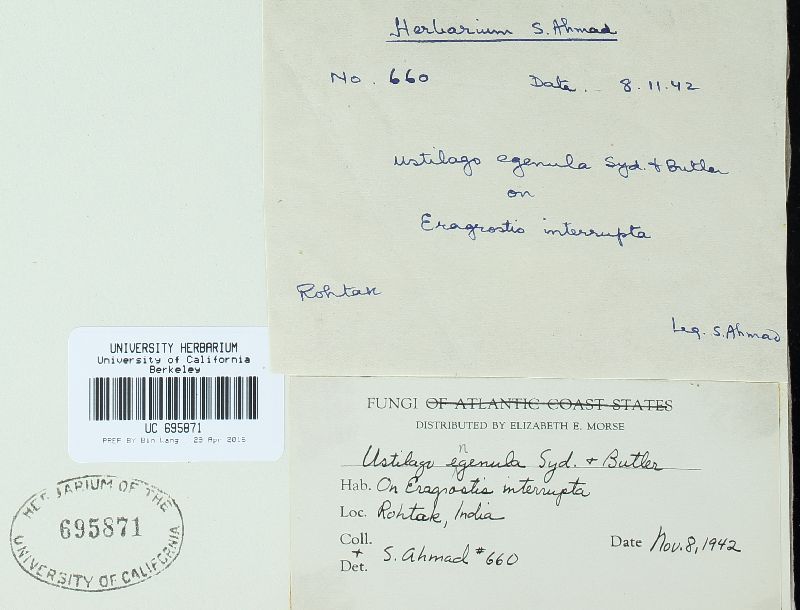 Herbarium S. Ahmad
No. 660 Date. 8.11.42
Ustilago egenula Syd. & Butler
on
Eragrostis interrupta
Rohtak
Leg. S. Ahmad
UNIVERSITY HERBARIUM
University of California
Berkeley
UC 695871
PREP BY Bin Lang 29 Apr 2016
HERBARIUM OF THE
695871
UNIVERSITY OF CALIFORNIA
FUNGI OF ATLANTIC COAST STATES
DISTRIBUTED BY ELIZABETH E. MORSE
n
Ustilago egenula Syd. & Butler
Hab. On Eragrostis interrupta
Loc. Rohtak, India
Coll.
+
Det. S. Ahmad #660
Date Nov. 8, 1942